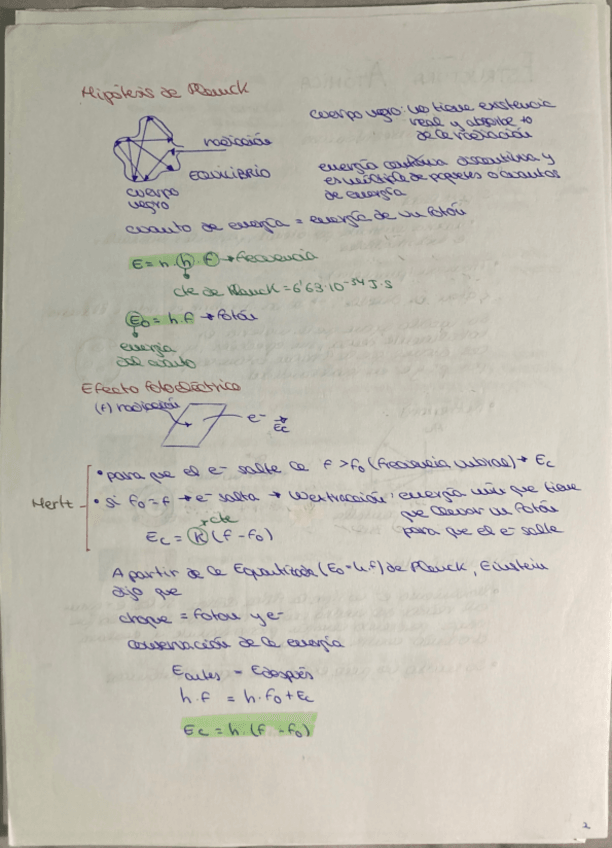 Hipótesis de Planck
cuerpo negro: no tiene existencia
real y absorbe to
de la radiación
radiación
EQUILIBRIO
cuerpo
negro
energía continua discontinua y
es múltiplo de paquetes o cuantos
de energía
cuanto de energía = energía de un fotón
E = n · h · f → frecuencia
cte de Planck = 6'63·10⁻³⁴ J·S
E₀ = h·f → fotón
energía
del cuanto
Efecto fotoeléctrico
(f) radiación
e⁻ → Ec
• para que el e⁻ salte la f > f₀ (frecuencia umbral) → Ec
Hertz
• si f₀ = f → e⁻ salta → Wextracción: energía mín que tiene
que llevar un fotón
para que el e⁻ salte
cte
Ec = K (f - f₀)
A partir de la Equantizada (E₀ = h·f) de Planck, Einstein
dijo que
choque = fotón y e⁻
conservación de la energía
Eantes = Edespués
h·f = h·f₀ + Ec
Ec = h · (f - f₀)
2